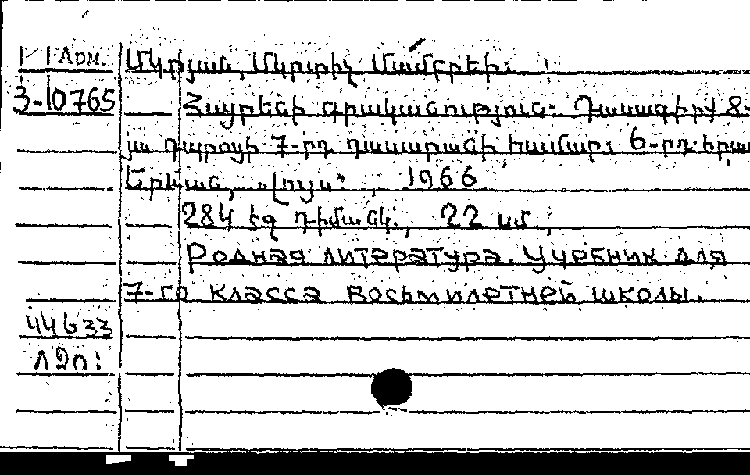 Арм. Մկրյան, Մկրտիչ Մամբրեի
3-10765 Հայրենի գրականություն: Դասագիրք 8-
յա դպրոցի 7-րդ դասարանի համար: 6-րդ հրատ
Երևան, «Լույս», 1966
284 էջ դիմանկ., 22 սմ
Родная литература. Учебник для
7-го класса восьмилетней школы.
44633